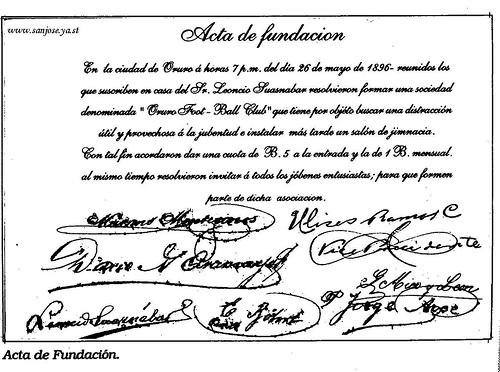 www.sanjose.ya.st
Acta de fundacion
En la ciudad de Oruro á horas 7 p.m. del día 26 de mayo de 1896- reunidos los
que suscriben en casa del Sr. Leoncio Suasnabar resolvieron formar una sociedad
denominada " Oruro Foot - Ball Club" que tiene por objéto buscar una distracción
útil y provechosa á la jubentud e instalar más tarde un salón de jimnacia.
Con tal fin acordaron dar una cuota de B. 5 a la entrada y la de 1 B. mensual.
al mismo tiempo resolvieron invitar á todos los jóbenes entusiastas; para que formen
parte de dicha asociacion.
Ulises Ramos C
Leoncio Suasnábar
Jorge
Acta de Fundación.